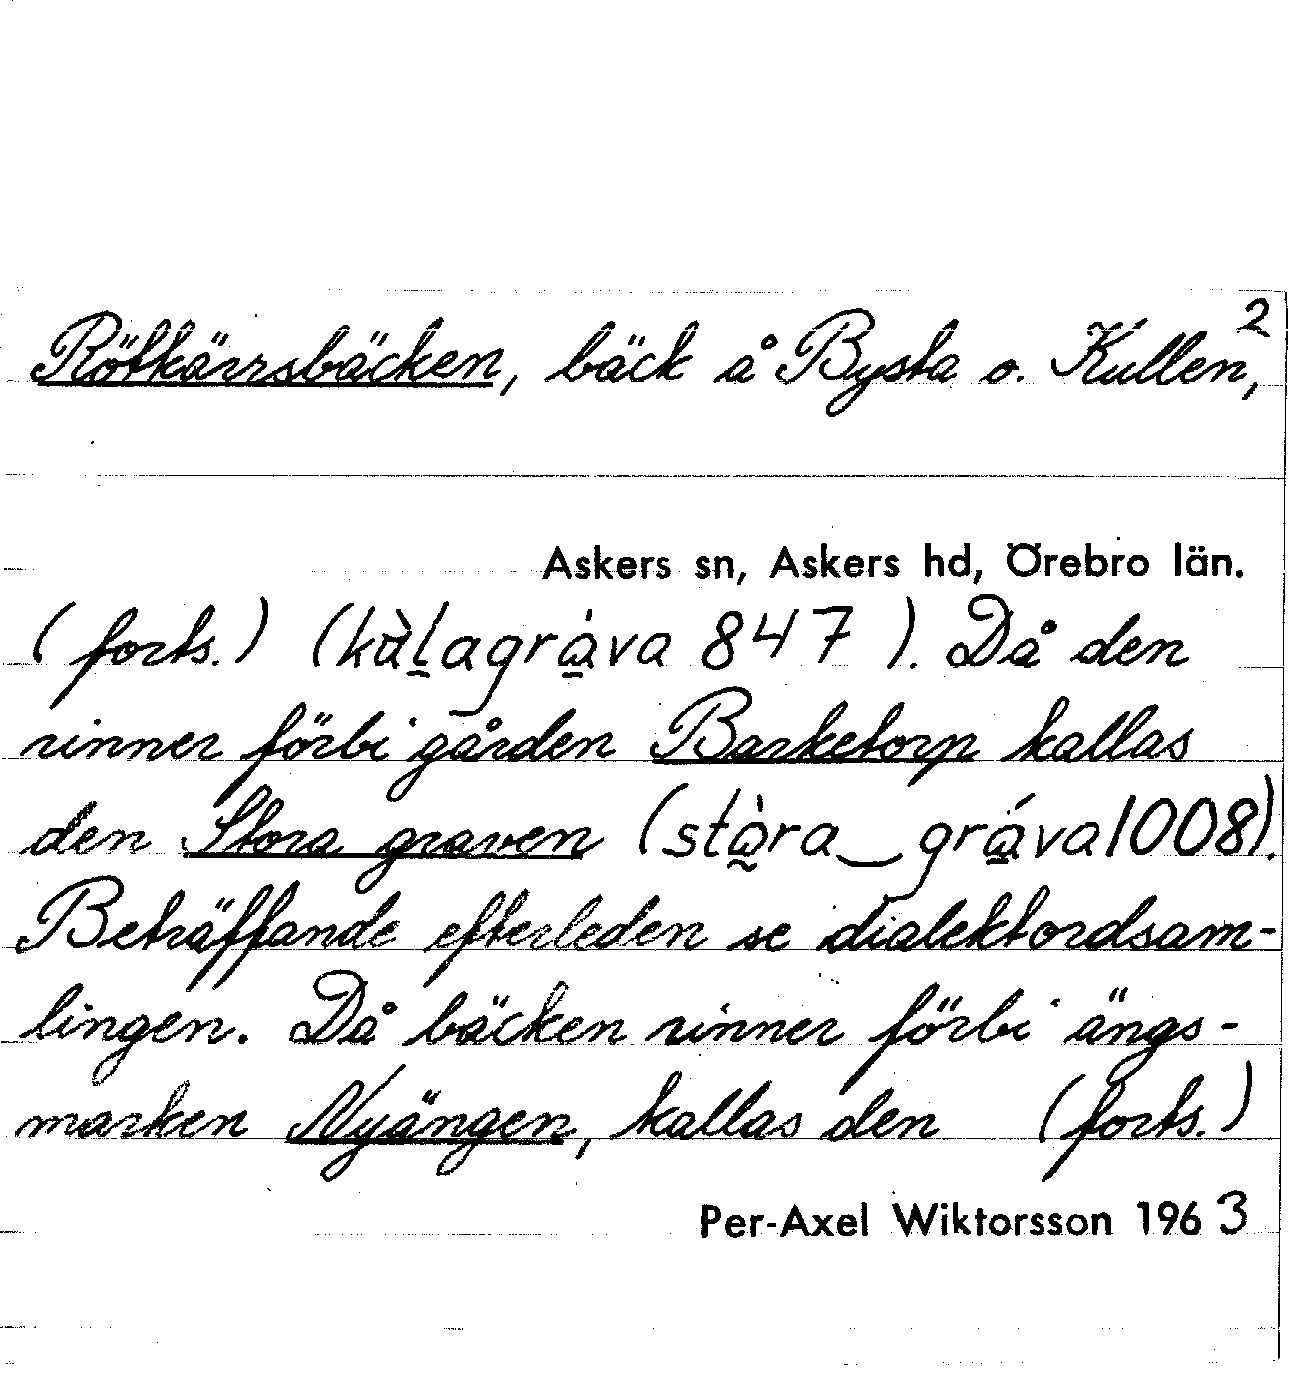 2
Rötkärrsbäcken, bäck å Bysta o. Kullen,
Askers sn, Askers hd, Örebro län.
(forts.) (kàl̠agrá̠va 847 ). Då den
rinner förbi gården Basketorp kallas
den Stora graven (stò̰ra‿grá̠va 1008).
Beträffande efterleden se dialektordsam-
lingen. Då bäcken rinner förbi ängs-
marken Nyängen, kallas den (forts.)
Per-Axel Wiktorsson 1963